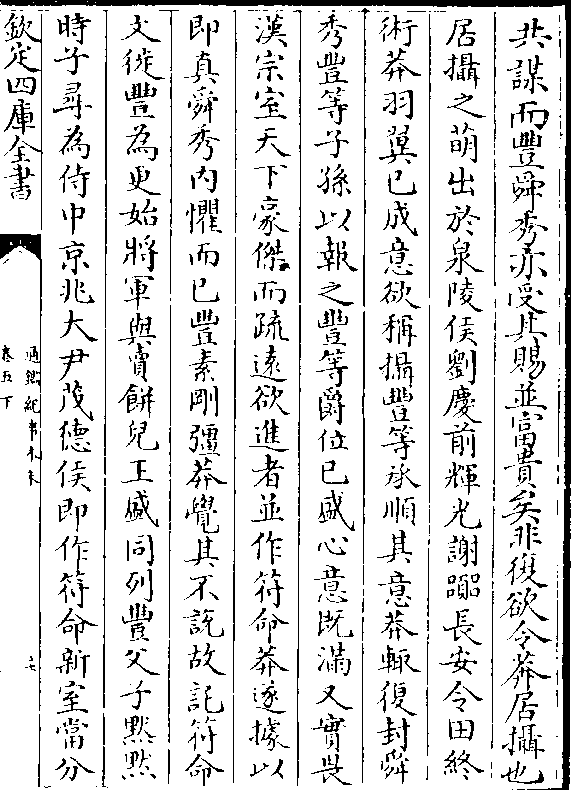 共謀而豐舜秀亦受其賜並富貴矣非復欲令莽居攝也
居攝之萌出於泉陵侯劉慶前輝光謝嚻長安令田終
術莽羽翼已成意欲稱攝豐等承順其意莽輒復封舜
秀豐等子孫以報之豐等爵位已盛心意既滿又實畏
漢宗室天下豪傑而疏遠欲進者並作符命莽遂據以
即真舜秀内懼而已豐素剛彊莽覺其不說故託符命
文徙豐為更始將軍與賣餅兒王盛同列豐父子黙黙
時子尋為侍中京兆大尹茂德侯即作符命新室當分
欽定四庫全書
通鑑紀事本末
卷五下